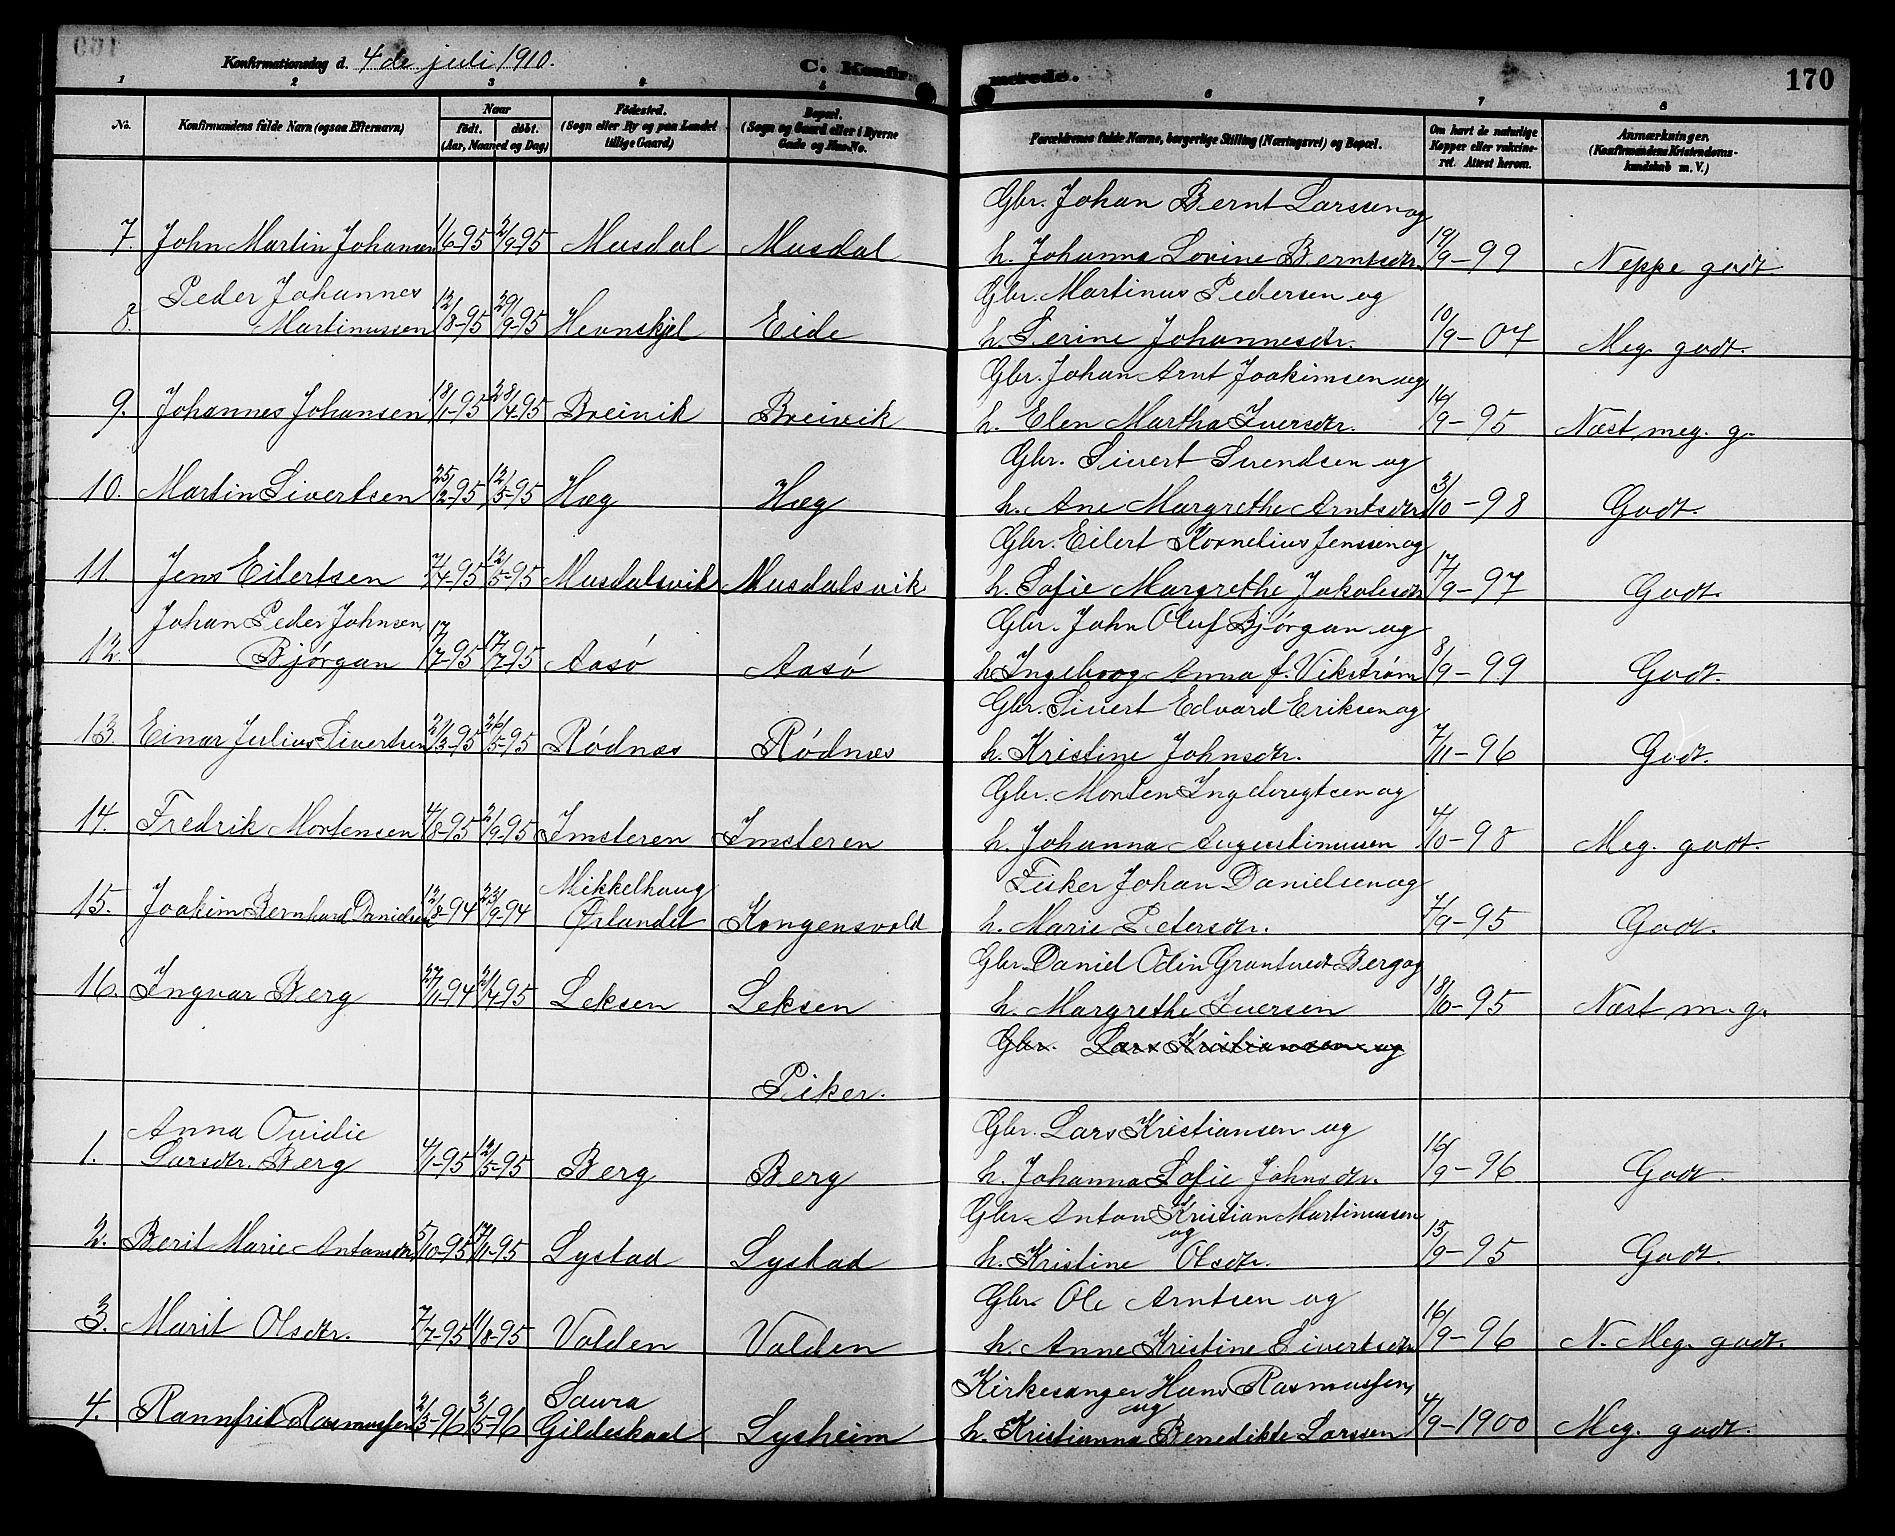 Konfirmationsdag d. 4de juli 1910.
C. Konfirmerede.
170
1 2 3 4 5 6 7 8
No. Konfirmandens fulde Navn (ogsaa Efternavn)
Naar født. døbt. (Aar, Maaned og Dag)
Fødested. (Sogn eller By og paa Landet tillige Gaard)
Bopæl. (Sogn og Gaard eller i Byerne Gade og Hus-No.
Forældrenes fulde Navne, borgerlige Stilling (Næringsvei) og Bopæl.
Om havt de naturlige Kopper eller vakcineret. Attest herom.
Anmærkninger. (Konfirmandens Kristendomskundskab m. V.)
Gbr. Johan Bernt Larssen og
7. John Martin Johansen 1/6-95 2/9-95 Musdal Musdal h. Johanna Lovine Berntsdtr. 19/9-99 Neppe godt
Peder Johannes Gbr. Martinus Pedersen og
8. Martinussen 12/8-95 29/9-95 Hevnskjel Eide h. Serine Johannesdtr. 10/9-07 Meg. godt.
Gbr. Johan Arnt Joakimsen og
9. Johannes Johansen 18/1-95 28/4-95 Breivik Breivik h. Elen Martha Iversdtr. 16/9-95 Næst meg. g.
Gbr. Sivert Svendsen og
10. Martin Sivertsen 25/2-95 12/5-95 Hæg Hæg h. Ane Margrethe Arntsdtr. 3/10-98 Godt.
Gbr. Eilert Kornelius Jenssen og
11. Jens Eilertsen 7/4-95 12/5-95 Musdalsvik Musdalsvik h. Sofie Margrethe Jakobsdtr 17/9-97 Godt.
Johan Peder Johnsen Gbr. John Oluf Bjørgan og
12. Bjørgan 17/7-95 17/7-95 Aasø Aasø h. Ingeborg Anna f. Vikstrøm 8/9-99 Godt.
Gbr. Sivert Edvard Eriksen og
13. Einar Julius Sivertsen 21/3-95 26/5-95 Rødnæs Rødnæs h. Kristine Johnsdtr. 7/11-96 Godt.
Gbr. Morten Ingebregtsen og
14. Fredrik Mortensen 4/8-95 2/9-95 Imsteren Imsteren h. Johanna Augustinussen 4/10-98 Meg. godt.
Mikkelhaug Fisker Johan Danielsen og
15. Joakim Bernhard Danielsen 12/8-94 23/9-94 Ørlandet Kongensvold h. Marie Petersdtr. 7/9-95 Godt.
Gbr. Daniel Odin Grontvedt Berg og
16. Ingvar Berg 27/11-94 21/4-95 Leksen Leksen h. Margrethe Iversen 18/10-95 Næst m. g.
Gbr. Lars Kristiansen og
Piker.
Anna Ovidie Gbr. Lars Kristiansen og
1. Larsdtr. Berg 4/1-95 12/5-95 Berg Berg h. Johanna Sofie Johnsdtr. 16/9-96 Godt.
Gbr. Anton Kristian Martinussen og
2. Berit Marie Antonsdtr 5/10-95 17/11-95 Lystad Lystad h. Kristine Olsdtr. 15/9-95 Godt.
Gbr. Ole Arntsen og
3. Marit Olsdtr. 7/7-95 11/8-95 Valden Valden h. Anne Kristine Sivertsdtr 16/9-96 N. Meg. godt.
Saura Kirkesanger Hans Rasmussen, og
4. Rannfrid Rasmussen 2/3-96 3/5-96 Gildeskaal Lysheim h. Kristianna Benedikte Larssen 4/9-1900 Meg. godt.